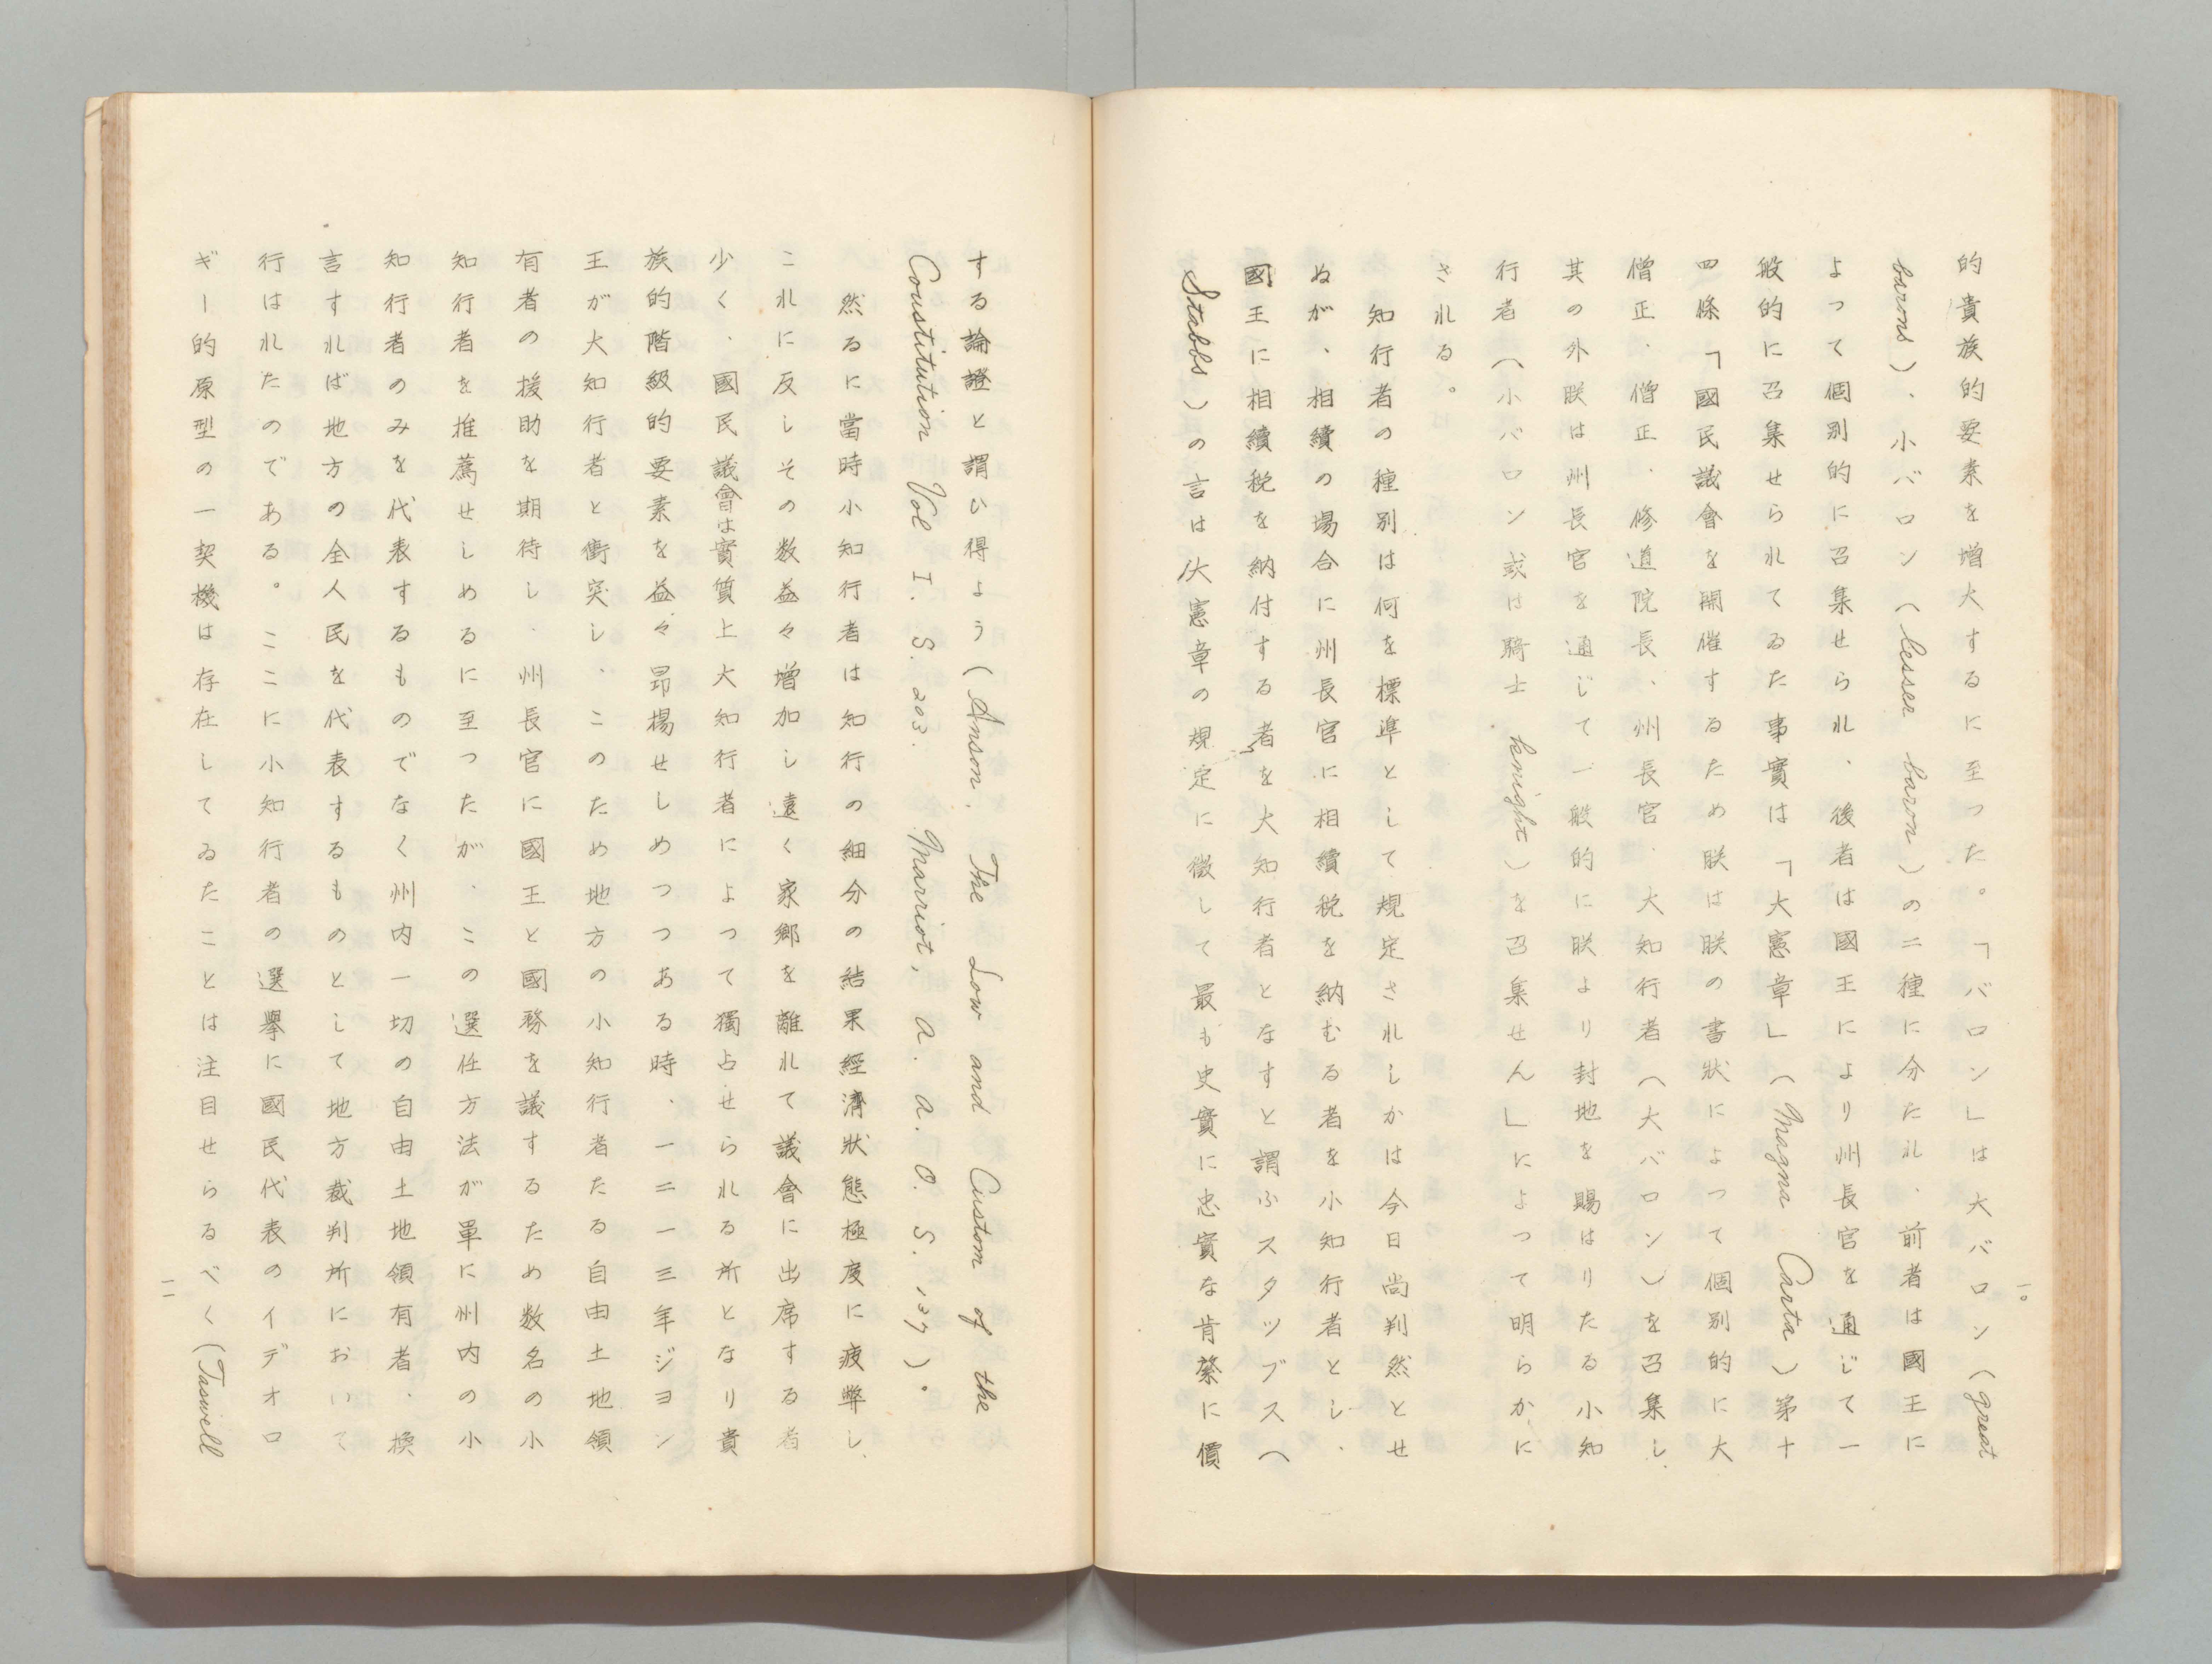 的貴族的要素を増大するに至つた。「バロン」は大バロン(great
barons)、小バロン(lesser baron)の二種に分たれ、前者は國王に
よつて個別的に召集せられ、後者は國王により州長官を通じて一
般的に召集せられてゐた事實は「大憲章」(Magna Carta)第十
四條「國民議會を開催するため朕は朕の書狀によつて個別的に大
僧正、僧正、修道院長、州長官、大知行者(大バロン)を召集し
其の外朕は州長官を通じて一般的に朕より封地を賜はりたる小知
行者(小バロン或は騎士 knight)を召集せん」によつて明らかに
される。
知行者の種別は何を標準として規定されしかは今日尚判然とせ
ぬが、相續の場合に州長官に相續税を納むる者を小知行者とし、
國王に相續税を納付する者を大知行者となすと謂ふスタツブス(
Stabbs)の言は大憲章の規定に徴して最も史實に忠實な肯綮に價
一〇
する論證と謂ひ得よう(Anson. The Low and Custom of the
Coustitution Vol I. S. 203. Marriot, a. a. O. S. 137)。
然るに當時小知行者は知行の細分の結果經濟狀態極度に疲弊し、
これに反しその数益々増加し遠く家郷を離れて議會に出席する者
少く、國民議會は實質上大知行者によつて獨占せられる所となり貴
族的階級的要素を益々昂揚せしめつつある時、一二一三年ジヨン
王が大知行者と衝突し、このため地方の小知行者たる自由土地領
有者の援助を期待し、州長官に國王と國務を議するため数名の小
知行者を推薦せしめるに至つたが、この選任方法が單に州内の小
知行者のみを代表するものでなく州内一切の自由土地領有者、換
言すれば地方の全人民を代表するものとして地方裁判所において
行はれたのである。ここに小知行者の選擧に國民代表のイデオロ
ギー的原型の一契機は存在してゐたことは注目せらるべく(Taswell
一一